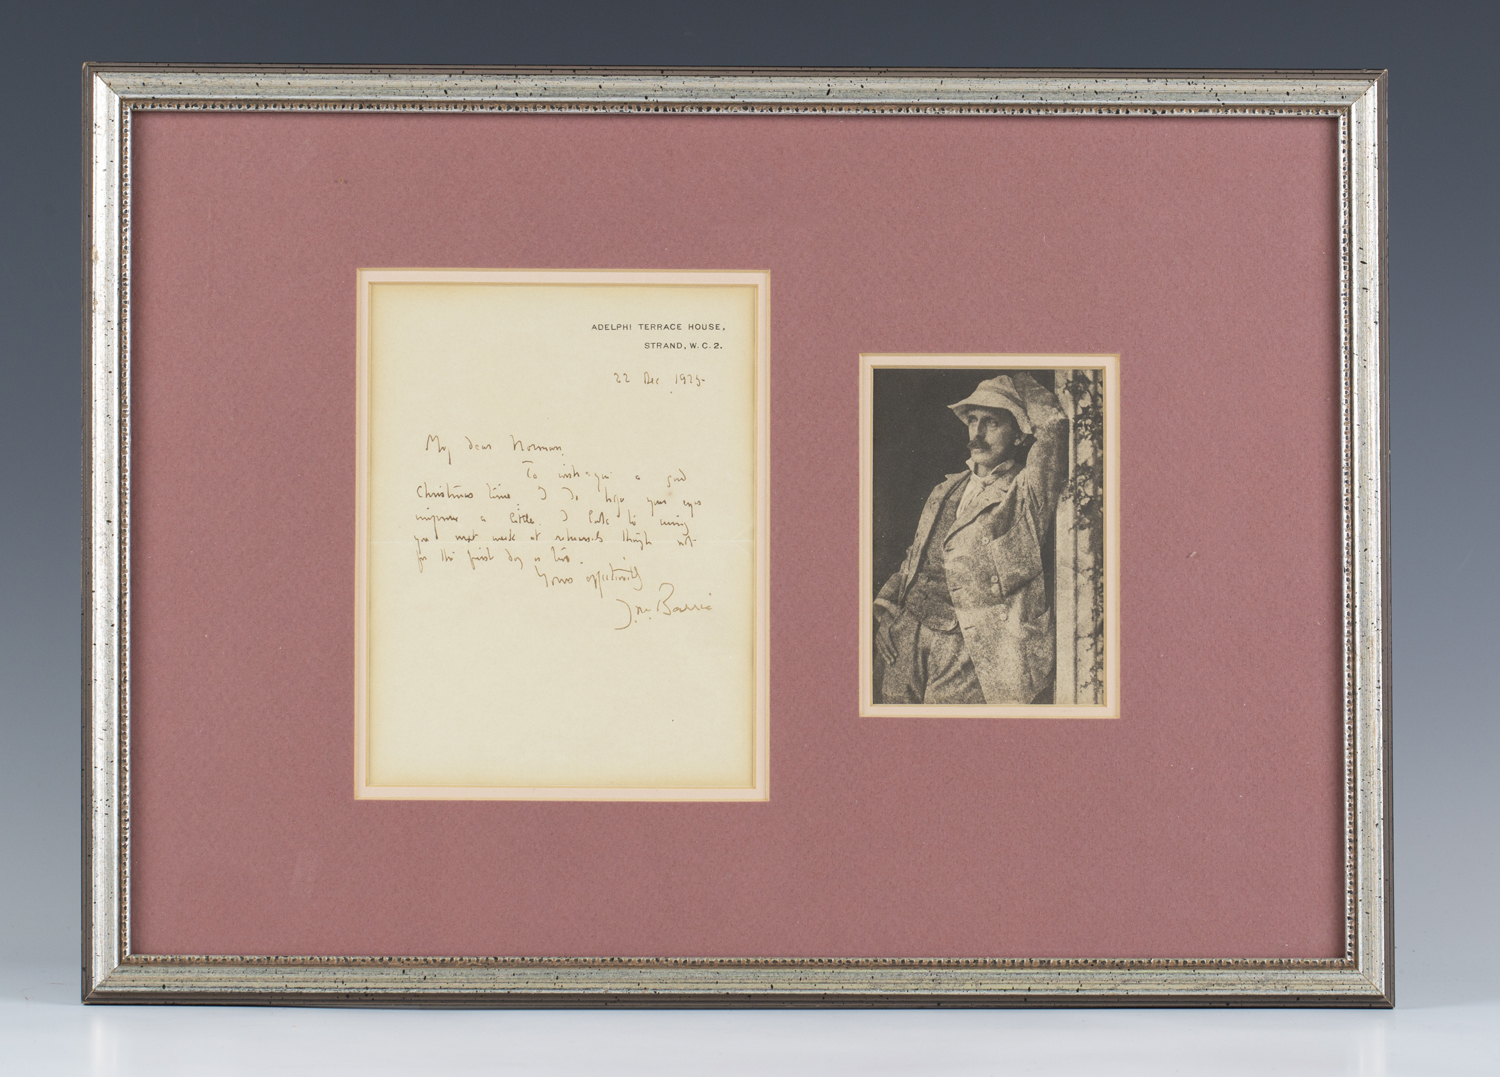 ADELPHI TERRACE HOUSE,
STRAND, W.C.2.
22 Dec 1925
My dear Norman,
To wish you a good
Christmas time. I do hope your eyes
improve a little. I look to seeing
you next week at rehearsals though not
for the first day or two.
Yours affectionately
J.M. Barrie